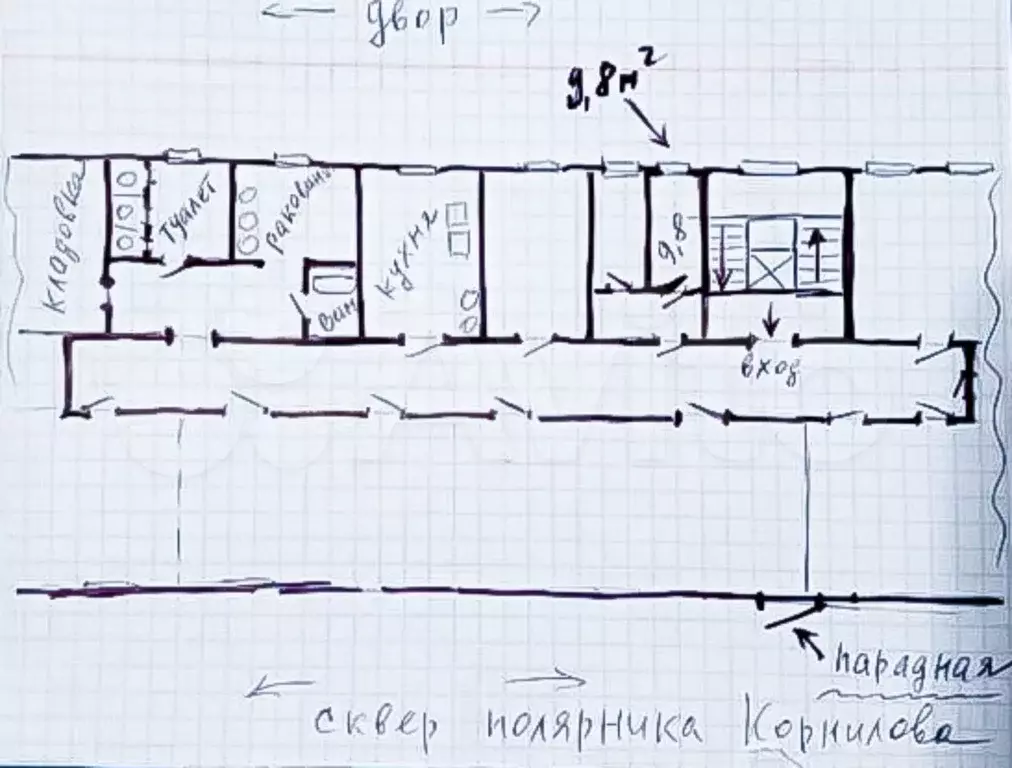 двор
9,8 м²
кладовка
туалет
раковины
кухня
ван
9,8
вход
парадная
сквер полярника Корнилова